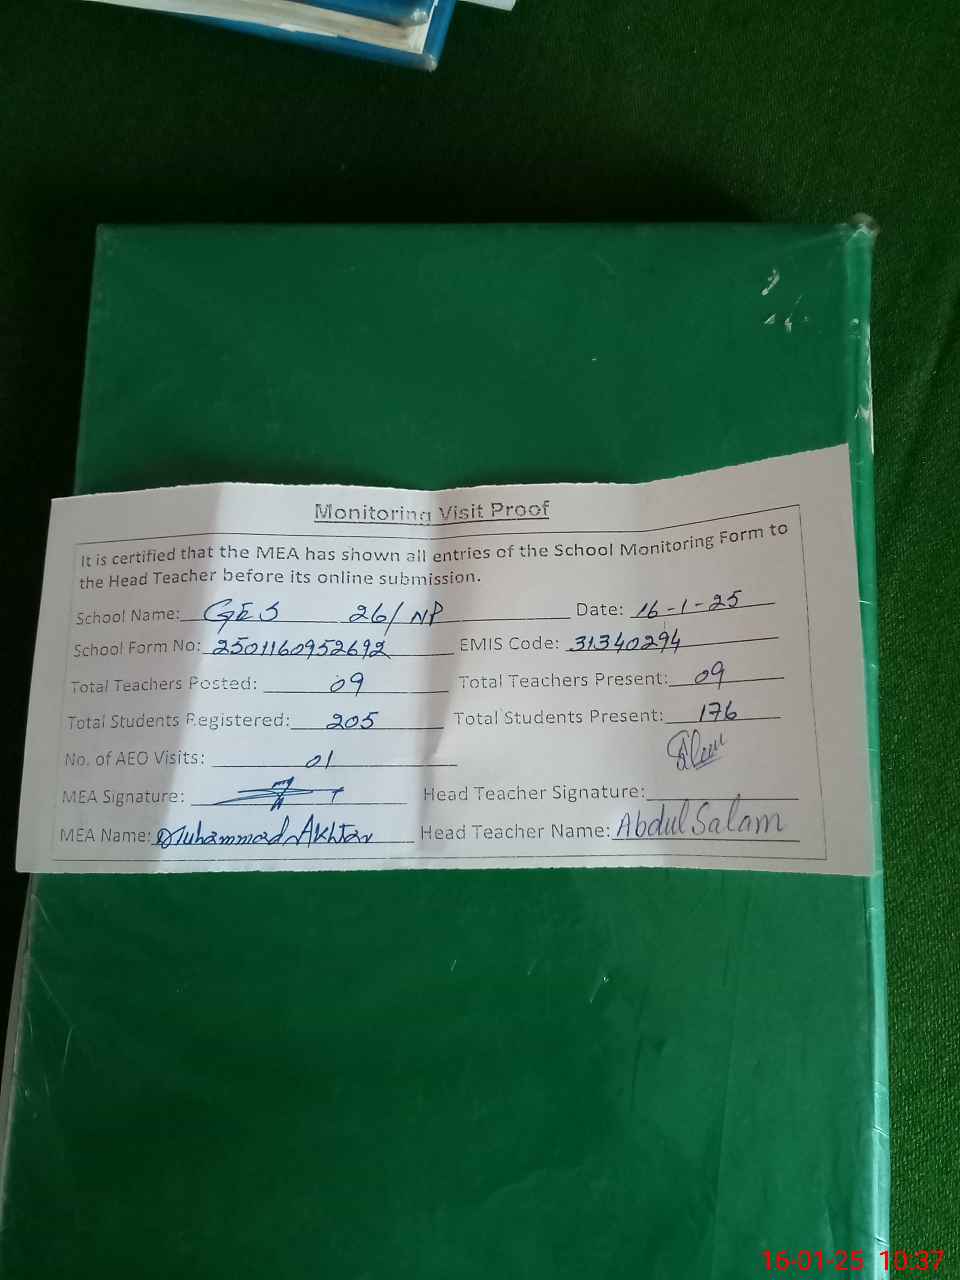 Monitoring Visit Proof
It is certified that the MEA has shown all entries of the School Monitoring Form to
the Head Teacher before its online submission.
School Name: GES 26/NP Date: 16-1-25
School Form No: 2501160952692 EMIS Code: 31340294
Total Teachers Posted: 09 Total Teachers Present: 09
Total Students Registered: 205 Total Students Present: 176
No. of AEO Visits: 01
MEA Signature: Head Teacher Signature:
MEA Name: Muhammad Akhtar Head Teacher Name: Abdul Salam
16-01-25 10:37